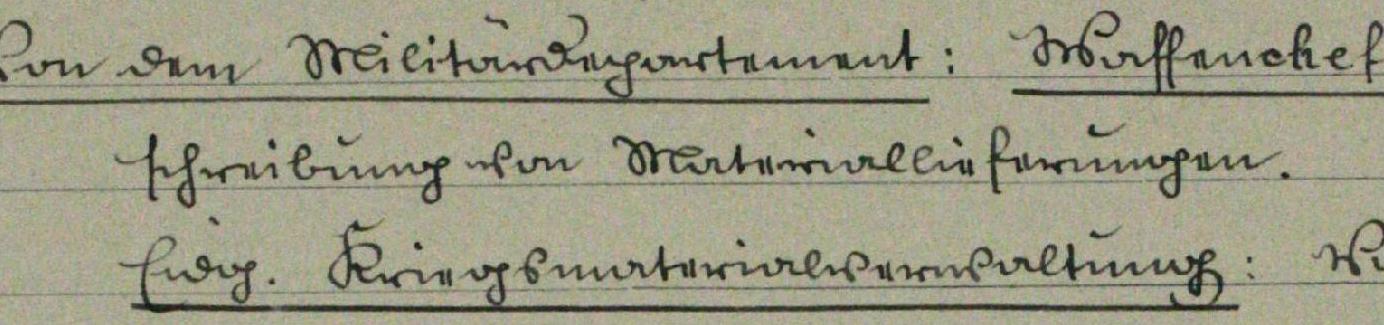 Von dem Militärdepartement: Waffenchef
schreibung von Materiallieferungen.
Eidg. Kriegsmaterialverwaltung: